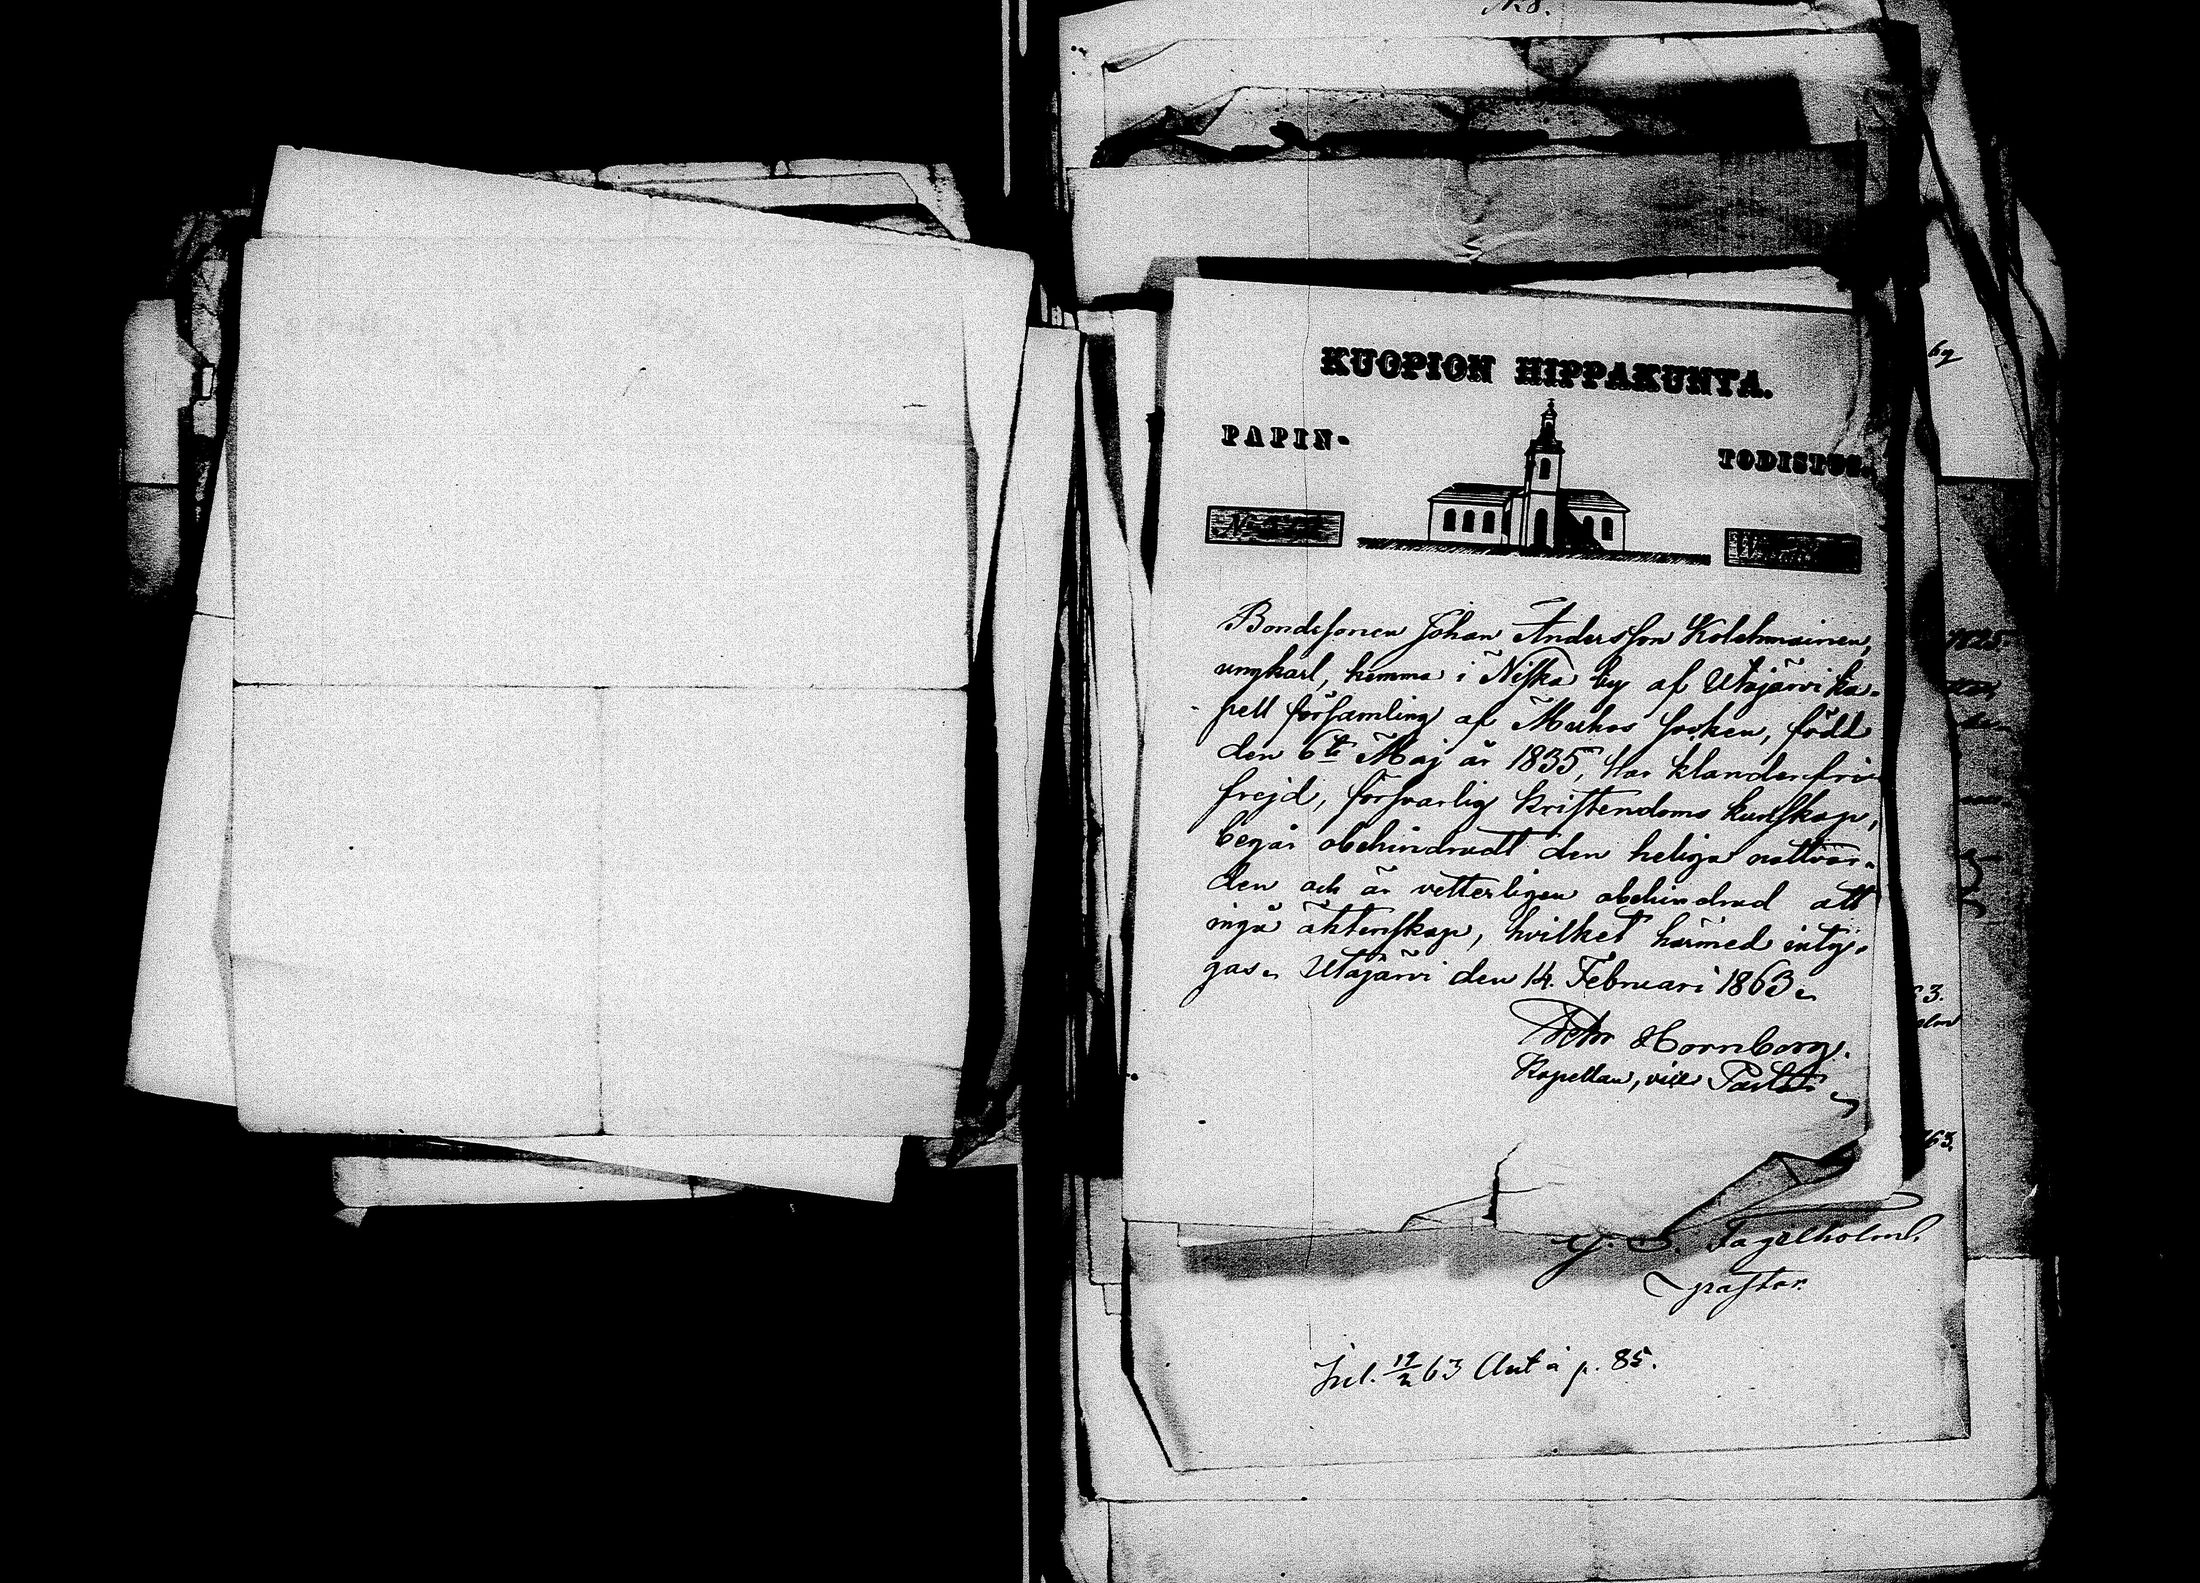 N:o 8.
KUOPION HIPPAKUNTA.
PAPIN- TODISTUS.
Bondesonen Johan Andersson Kolehmainen,
ungkarl, hemma i Niska by af Utajärvi ka-
pell församling af Muhos socken, född
den 6te Maj år 1835, har klanderfri
frejd, försvarlig kristendoms kunskap,
begår obehindradt den heliga nattvar-
den och är vetterligen obehindrad att
ingå äktenskap, hvilket härmed inty-
gas. Utajärvi den 14. Februari 1863.
Petr Hornborg.
Kapellan, vice Pastor
Fagelholm.
pastor.
63 Ant å p. 85.
1825
63.